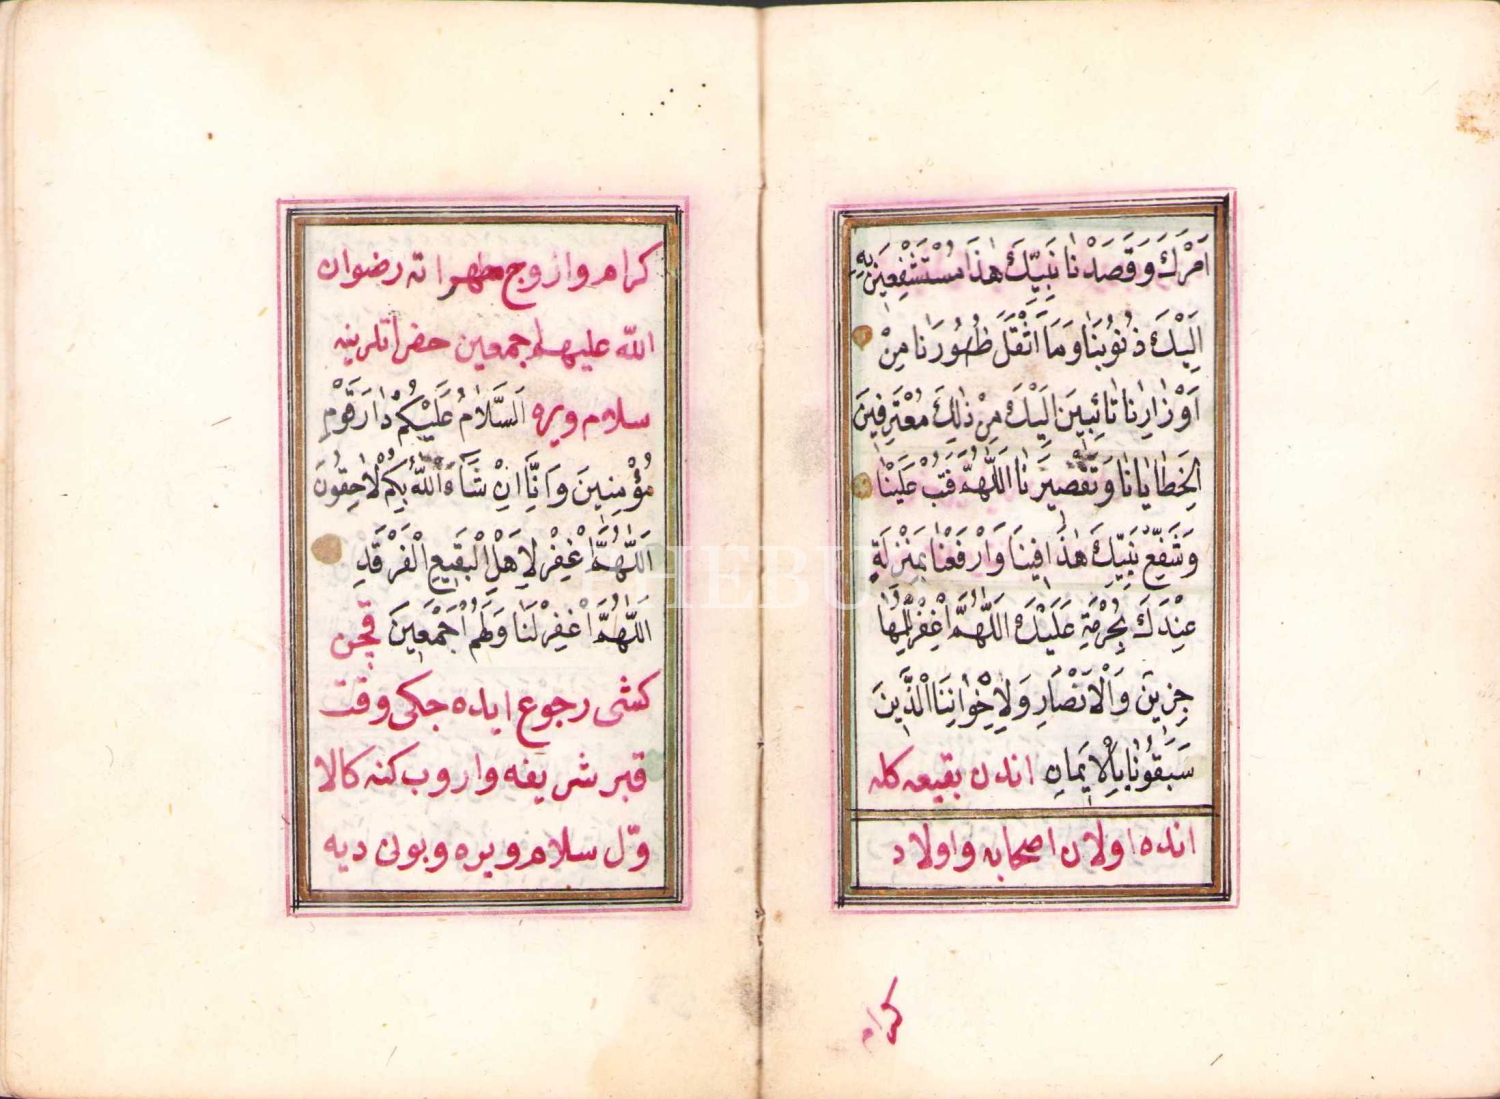 اَمْرَكَ وَ قَصَدْنَا نَبِيَّكَ هٰذَا مُسْتَشْفِعِينَ بِهِ
اِلَيْكَ ذُنُوبَنَا وَمَا اَثْقَلَ ظُهُورَنَا مِنْ
اَوْزَارِنَا تَائِبِينَ اِلَيْكَ مِنْ ذٰلِكَ مُعْتَرِفِينَ
الخَطَايَانَا وَتَقْصِيرَنَا اَللّٰهُمَّ فَتُبْ عَلَيْنَا
وَ شَفِّعْ نَبِيَّكَ هٰذَا فِينَا وَارْفَعْنَا بِمَنْزِلَةٍ
عِنْدَكَ بِحُرْمَةٍ عَلَيْكَ اَللّٰهُمَّ اغْفِرْ لِلْمُهَا
جِرِينَ وَالْاَنْصَارِ وَلِاِخْوَانِنَا الَّذِينَ
سَبَقُونَا بِالْاِيمَانِ اندن بقيعه كله
انده اولان اصحابه و اولاد
كرام
كرام و ازوج مطهراته رضوان
الله عليهم اجمعين حضراتلرينه
سلام ويره اَلسَّلَامُ عَلَيْكُمْ دَارَ قَوْمٍ
مُؤْمِنِينَ وَ اِنَّا اِنْ شَآءَ اللّٰهُ بِكُمْ لَاحِقُونَ
اَللّٰهُمَّ اغْفِرْ لِاَهْلِ الْبَقِيعِ الْفَرْقَدِ
اَللّٰهُمَّ اغْفِرْ لَنَا وَلَهُمْ اَجْمَعِينَ قچن
كشى رجوع ايده جكى وقت
قبر شريفه واروب كنه كالا
وّل سلام ويره وبونى ديه
THEBU